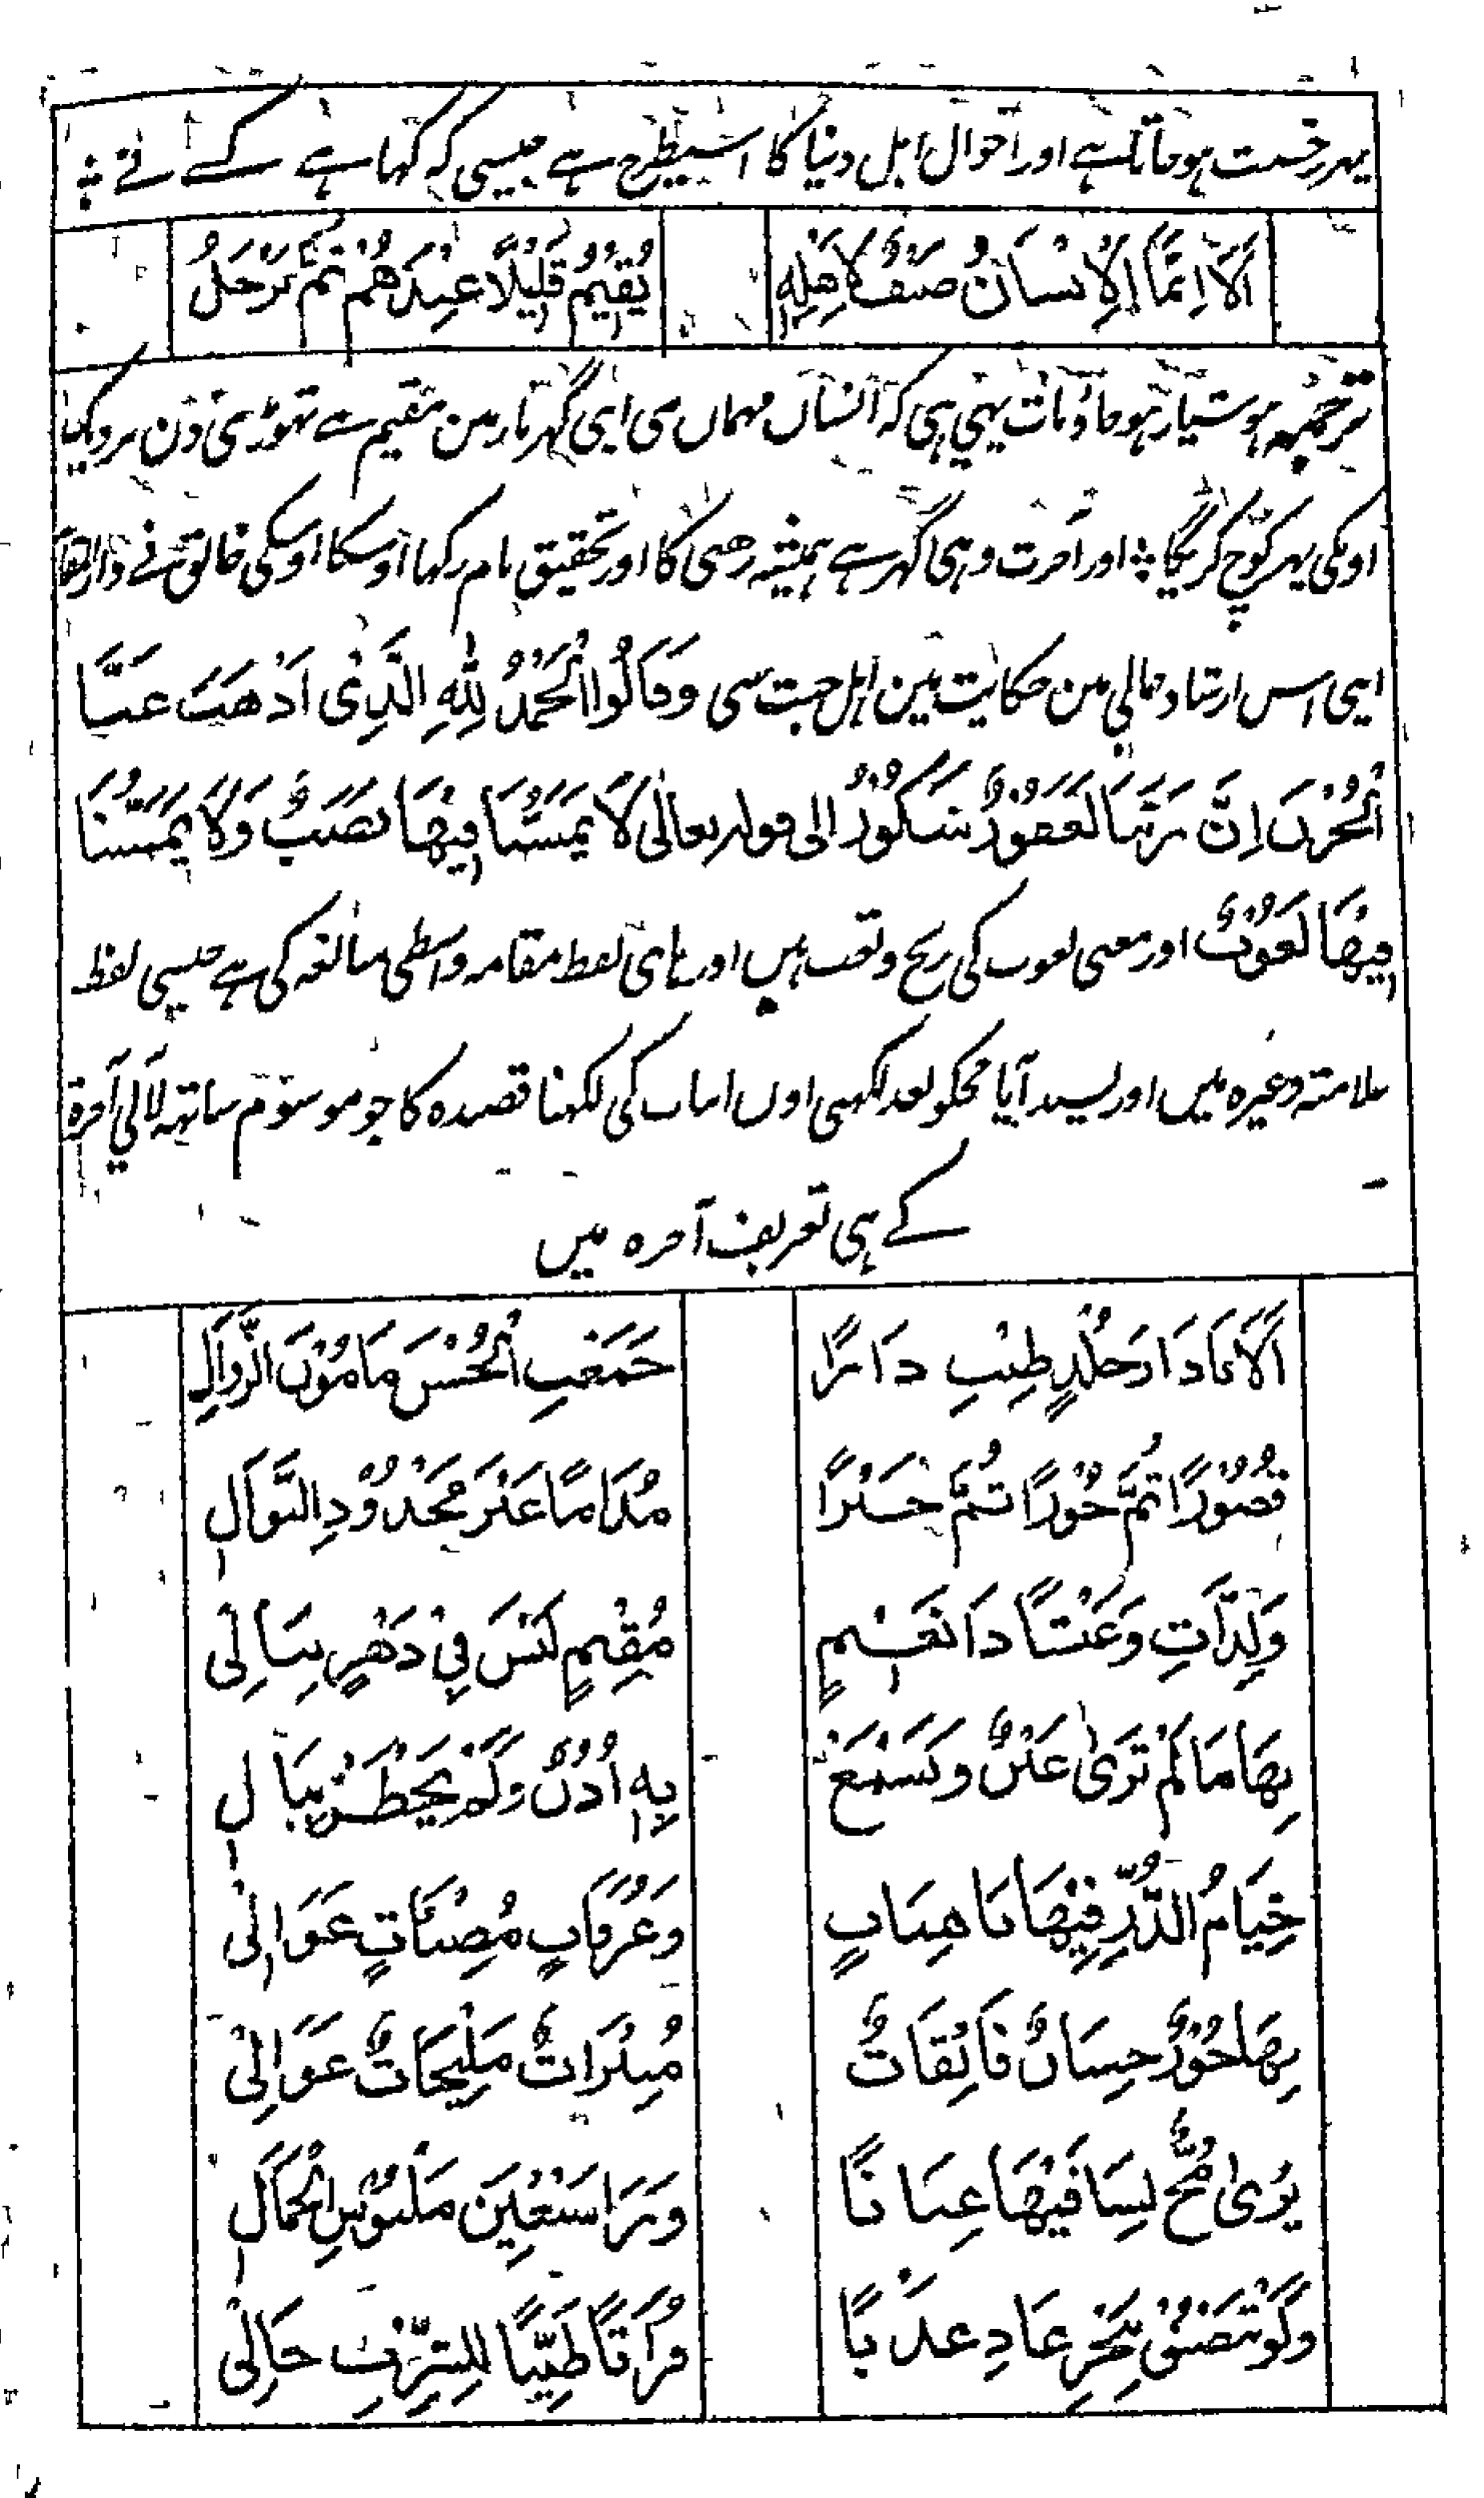 پہر رخصت ہو جاتا ہے اور احوال اہل دنیا کا اسیطرح ہے جیسی کہ کہا ہے کسے نے ؞
اَلَا اِنَّمَا الْاِنْسَانُ ضَیْفٌ لِاَهْلِهٖ
یُقِیْمُ قَلِیْلًا عِنْدَهُمْ ثُمَّ یَرْحَلُ
ترجمہ ہوشیار ہو جاؤ بات یہی ہی کہ انسان مہمان ہی اپنی گہر بار من مقیم ہے تھوڑی دن نزدیک
اونکی پہر کوچ کریگا ؞ اور آخرت وہی گہر ہے ہمیشہ رہنی کا اور تحقیق نام رکہا اوسکا اوسکی خالق نے دار المقامہ
اپنی اس ارشاد عالی من حکایت مین اہل جنت سی وَقَالُوا الْحَمْدُ لِلّٰهِ الَّذِیْ اَذْهَبَ عَنَّا
الْحُزْنَ اِنَّ رَبَّنَا لَغَفُوْرٌ شَكُوْرٌ الی قولہ تعالی لَا یَمَسُّنَا فِیْهَا نَصَبٌ وَلَا یَمَسُّنَا
فِیْهَا لُغُوْبٌ اور معنی لغوب کی رنج و تعب ہیں اور تای لفظ مقامہ واسطی مبالغہ کی ہے جیسی لفظ
علامتہ وغیرہ میں اور پسند آیا مجکو بعد لکہنی اون ابیات کی لکہنا قصیدہ کا جو موسوم ساتھ لآلی آخرۃ
کے ہی تعریف آخرہ میں
اَلَا یَا دَارَ خُلْدٍ طِبْتِ دَارًا
جَمَعْتِ الْحُسْنَ مَامُوْنَ الزَّوَالِ
قُصُوْرًا ثُمَّ حُوْرًا ثُمَّ خَیْرًا
مُدَامًا غَیْرَ مَحْدُوْدِ النَّوَالِ
وَلِذَّاتٍ وَعَیْشًا ذَا نَعِیْمٍ
مُقِیْمٍ لَیْسَ فِیْ دَهْرٍ بِبَالِیْ
بِهَا مَا لَمْ تَرٰی عَیْنٌ وَتَسْمَعْ
بِهٖ اُذُنٌ وَلَمْ یَخْطُرْ بِبَالِ
خِیَامُ الدُّرِّ فِیْهَا نَاهِبَاتٍ
وَغُرْفَاتٍ مُضِیْئَاتٍ عَوَالِیْ
بِهَا حُوْرٌ حِسَانٌ فَائِقَاتٌ
مُنِیْرَاتٌ مَلِیْحَاتٌ غَوَالِیْ
یُرٰی مُخٌّ لِسَاقَیْهَا عِیَانًا
وَرَا سَبْعِیْنَ مَلْبُوْسِ الْجَمَالِ
وَلَوْ تَبْصُقْ بِبَحْرٍ عَادَ عَذْبًا
فُرَاتًا طَیِّبًا لِلشُّرْبِ حَالِیْ